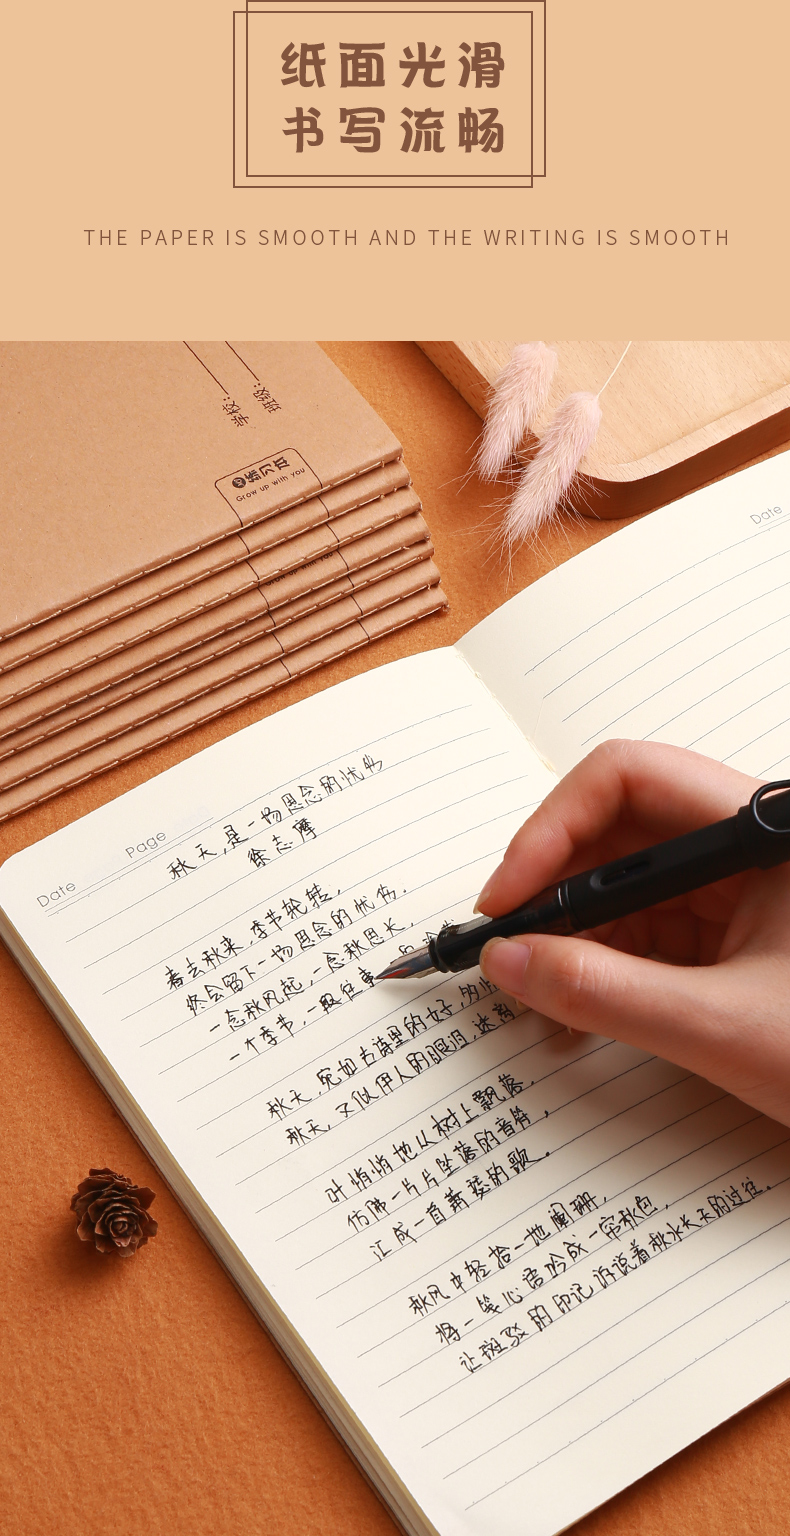 纸面光滑
书写流畅
THE PAPER IS SMOOTH AND THE WRITING IS SMOOTH
学校:
班级:
练习本
Grow up with you
Date
Date
Page
秋天,是一场思念的忧伤
徐志摩
春去秋来,季节轮转,
终会留下一场思念的忧伤.
一念秋风起,一念秋思长,
一个季节,一段往事
秋天,宛如古诗里的女子,
秋天,又似伊人的眼泪,迷离
叶悄悄地从树上飘落,
仿佛一片片坠落的音符,
汇成一首萧瑟的歌.
秋风中轻拾一地阑珊,
将一笺心语吟成一帘秋色,
让斑驳的印记诉说着秋水长天的过往.